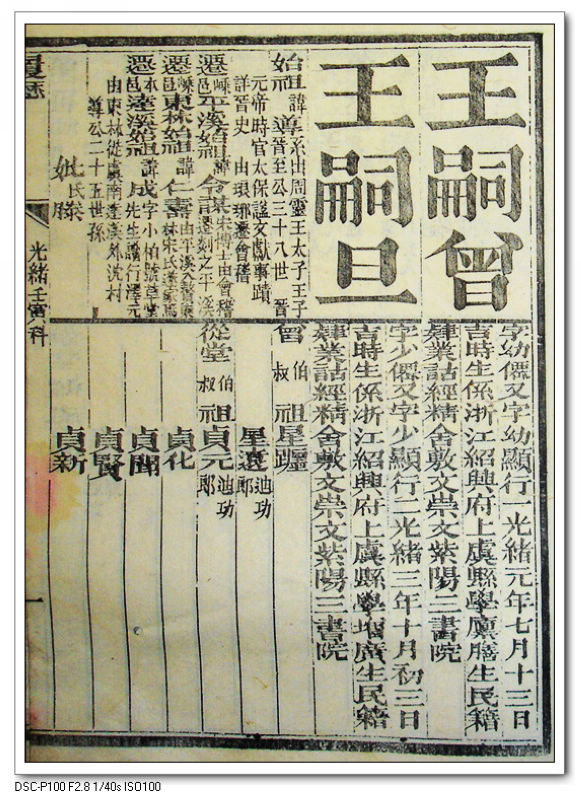 王嗣曾
字幼儒又字幼顯行一光緒元年七月十三日
吉時生係浙江紹興府上虞縣學廩膳生民籍
肄業詁經精舍敷文崇文紫陽三書院
王嗣旦
字少儒又字少顯行二光緒三年十月初三日
吉時生係浙江紹興府上虞縣學增廣生民籍
肄業詁經精舍敷文崇文紫陽三書院
始祖諱導系出周靈王太子王子
晉至公三十八世晉
元帝時官太保諡文獻事蹟
詳晉史由琅琊遷會稽
遷嵊邑平溪始祖諱令謀宋博士由會稽
遷剡之平溪
遷嵊邑東林始祖諱仁壽由平溪入贅
林宋氏遂家焉
遷本邑達溪始祖諱成字小伯號草堂
先生譜行澤元
由東林徙虞南達溪外沈村
導公二十五世孫
妣氏滕
曾伯叔祖星躔
星遠迪功郎
從堂伯叔祖貞元迪功郎
貞化
貞聞
貞賢
貞新
履歷
光緒壬寅科
一
DSC-P100 F2.8 1/40s ISO100